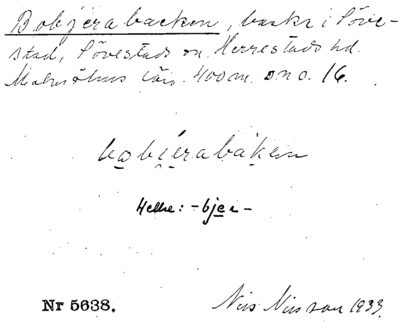 Bobjerabacken, backe i Söve-
stad, Sövestads sn. Herrestads hd.
Malmöhus län. 400 m. ono. 16.
bobjérabáken
Helle: -bjer-
Nr 5638.
Nils Nilsson 1933.